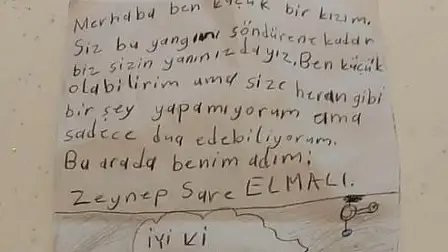 Merhaba ben küçük bir kızım.
Siz bu yangını söndürene kadar
biz sizin yanınızdayız. Ben küçük
olabilirim ama size herangibi
bir şey yapamıyorum ama
sadece dua edebiliyorum.
Bu arada benim adım;
Zeynep Sare ELMALI.
iyi ki